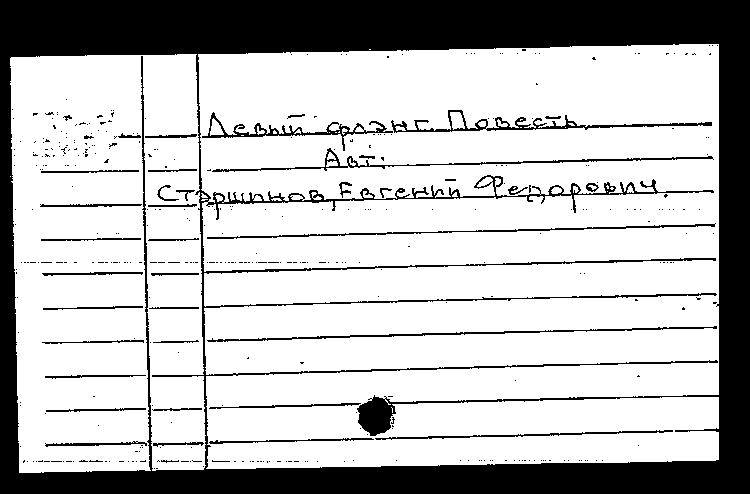 Левый фланг. Повесть.
Авт:
Старшинов, Евгений Федорович.